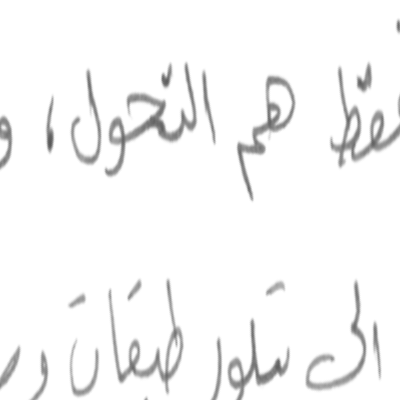 فقط هم التحول، و
الى تبلور طبقات و